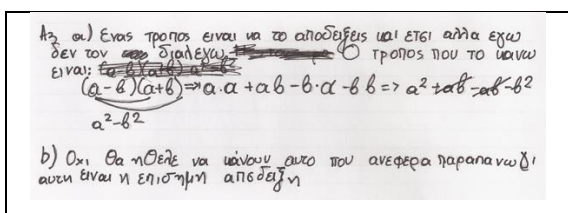 Α3 α) Ενας τροπος ειναι να το αποδειξεις και ετσι αλλα εγω
δεν τον διαλεγω. Ο τροπος που το κανω
ειναι:
(a-b)(a+b) => a.a + ab - b.a - bb => a² + ab - ab - b²
a² - b²
b) Οχι θα ηθελε να κανουν αυτο που ανεφερα παραπανω γι
αυτη ειναι η επισημη αποδειξη